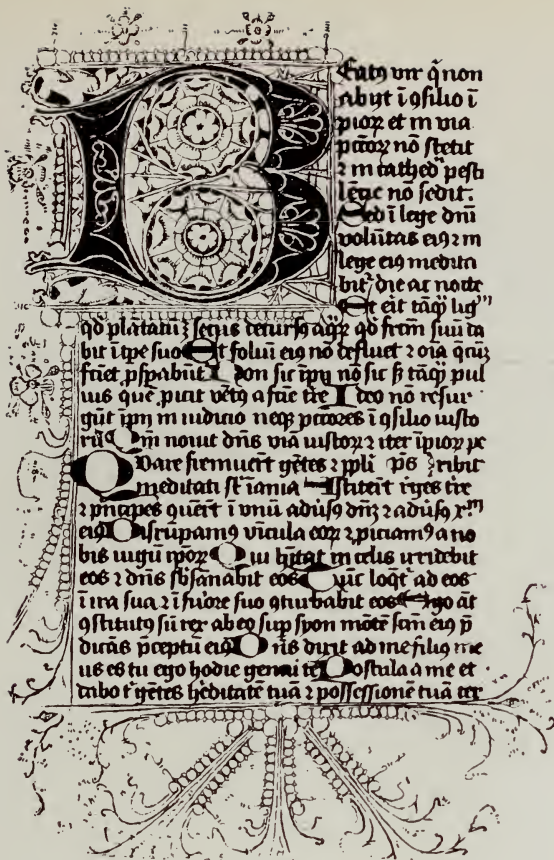 Beatꝰ vir q̃ non
abijt ĩ ꝯsilio ĩ
pioꝝ et in via
pc̃toꝝ nõ stetit
⁊ in cathed̾ pesti
lẽcie nõ sedit.
Sed ĩ lege dñi
volũtas eiꝰ ⁊ in
lege eiꝰ medita
bit᷑ die ac nocte
Et erit tãꝙ lig
qd̾ plãtatũ ꝫ secus decursꝰ aqꝝ qd̾ frc̃m suũ da
bit ĩ tp̃e suo Et foliũ eiꝰ nõ defluet ⁊ oĩa q̃cũꝫ
faciet ꝓspabũt᷑ Non sic ĩpij nõ sic sꝫ tãꝙ pul
uis quẽ ꝓicit vẽtꝰ a facie tr̃e Ideo nõ resur
gũt ĩpij in iudicio neqꝫ pc̃tores ĩ ꝯsilio iusto
rũ Qm̃ nouit dñs viã iustoꝝ ⁊ iter ĩpioꝝ pe
Quare fremuerũt gẽtes ⁊ ppli p̃s ribit
meditati sũt ĩania Astiterũt reges tr̃e
⁊ pñcipes ꝯuenerũt ĩ vnũ aduersꝰ dñm ⁊ aduersꝰ xᵐ
eiꝰ Disrũpamꝰ vĩcula eoꝝ ⁊ ꝓiciamꝰ a no
bis iugũ ipoꝝ Qui hĩtat in celis irridebit
eos ⁊ dñs sbsãnabit eos Tũc loqt᷑ ad eos
ĩ ira sua ⁊ ĩ furore suo ꝯturbabit eos Ego aũt
ꝯstitutꝰ sũ rex ab eo sup syon mõtẽ scm̃ eiꝰ p̃
dicãs p̃ceptũ eiꝰ Dñs dixit ad me filiꝰ me
us es tu ego hodie genui te Postula a me et
dabo t̾ gẽtes hẽditatẽ tuã ⁊ possessionẽ tuã ter